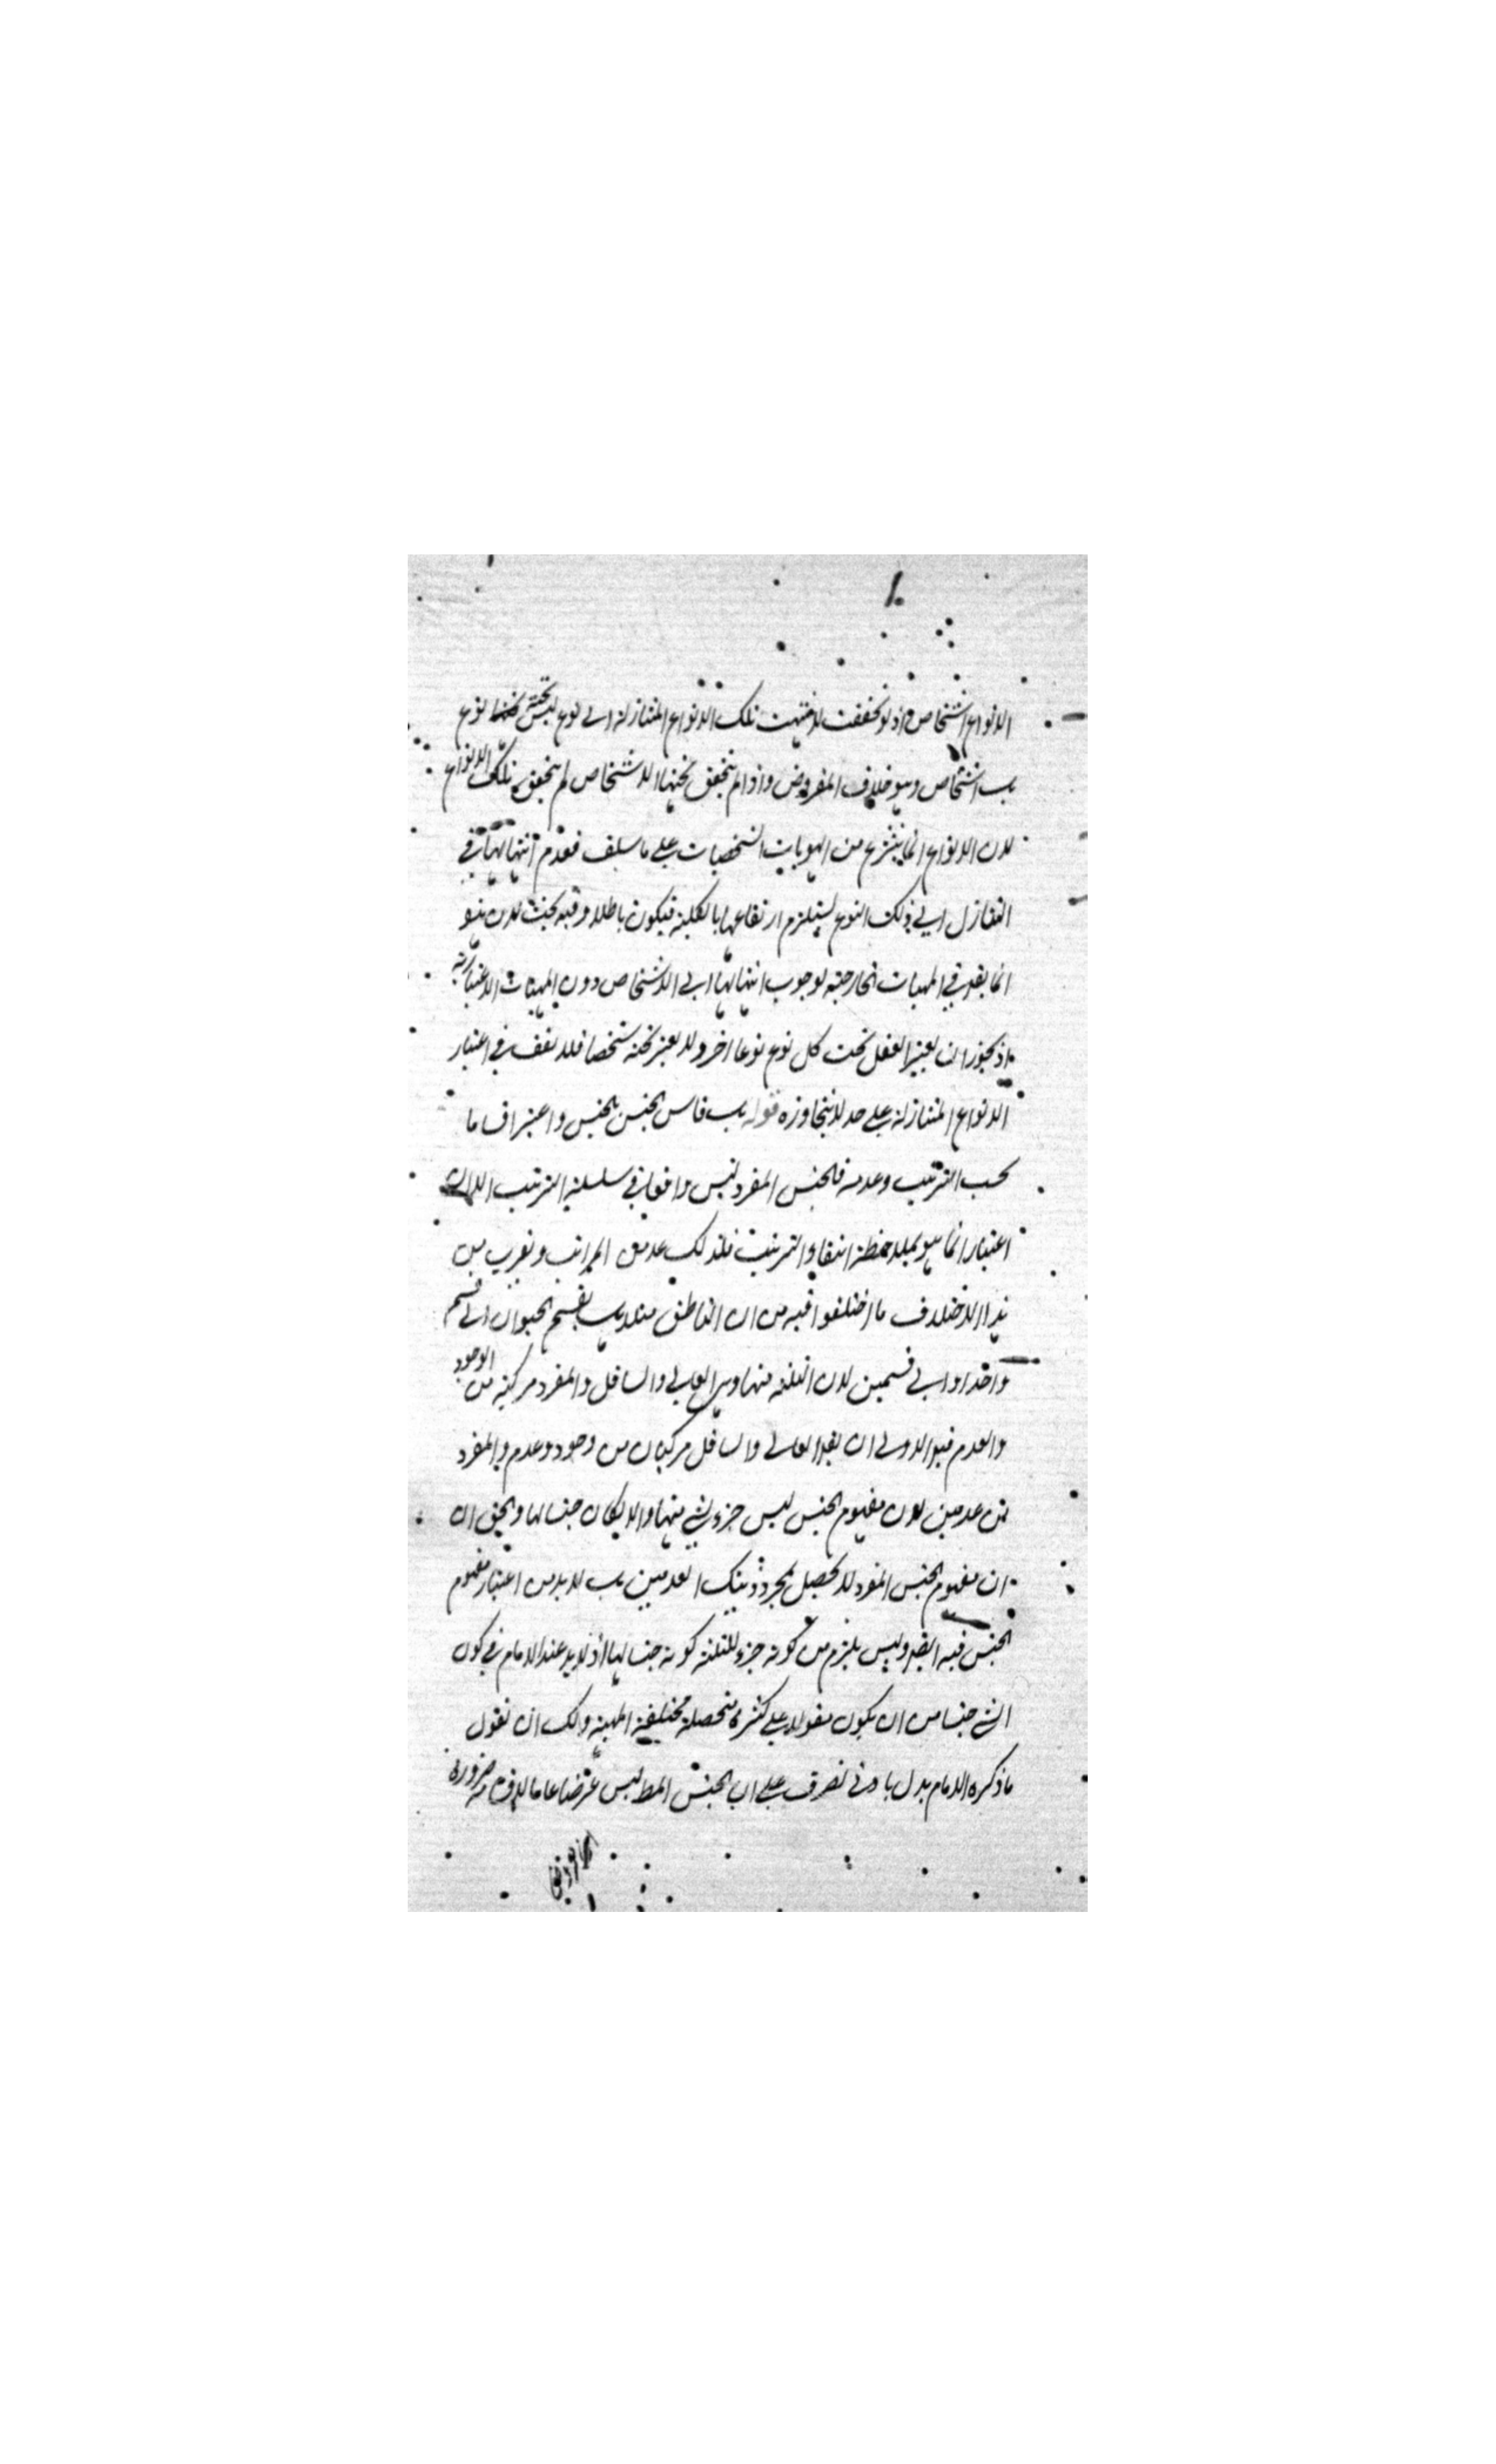 الانواع اشخاص اذ لو تحققت لانتهت تلك الانواع المتنازلة الى نوع ليس تحته نوع
بل اشخاص وهو خلاف المفروض واذا لم يتحقق تحتها الاشخاص لم يتحقق تلك الانواع
لان الانواع انما ينتزع من الهويات الشخصيات على ما سلف فعدم انتهائها في
التنازل الى ذلك النوع يستلزم ارتفاعها بالكلية فيكون باطلا وفيه بحث لان هذا
انما يفيد في المهيات الخارجية لوجوب انتهائها الى الاشخاص دون المهيات الاعتبارية
اذ يجوز ان يعتبر العقل تحت كل نوع نوعا اخر ولا يعتبر تحته شخصا فلا تقف في اعتبار
الانواع المتنازلة على حد لا يتجاوزه قوله بل قاس الجنس بالجنس واعتبر اقساما
بحسب الترتيب وعدمه فالجنس المفرد ليس واقعا في سلسلة الترتيب الا ان
اعتباره انما هو بملاحظة انتفاء الترتيب فلذلك عد من المراتب ويقرب من
هذا الاختلاف ما اختلفوا فيه من ان الناطق مثلا هل يقسم الحيوان الى قسم
واحد او الى قسمين لان الثلثة منها وهي العالي والسافل والمفرد مركبة من الوجود
والعدم فيه الاولى ان يقال العالي والسافل مركبان من وجود وعدم والمفرد
من عدمين لان مفهوم الجنس ليس جزء لشئ منها والا لكان جنسا لها والحق ان
ان مفهوم الجنس المفرد لا يحصل بمجرد ذينك العدمين بل لا بد من اعتبار مفهوم
الجنس فيه ايضا وليس يلزم من كونه جزء للثلثة كونه جنسا لها اذ لا بد عند الامام في كون
الشئ جنسا من ان يكون مقولا على كثرة متحصلة مختلفة المهية ولك ان تقول
ما ذكره الامام يدل بادنى تصرف على ان الجنس المط ليس عرضا عاما ضرورة